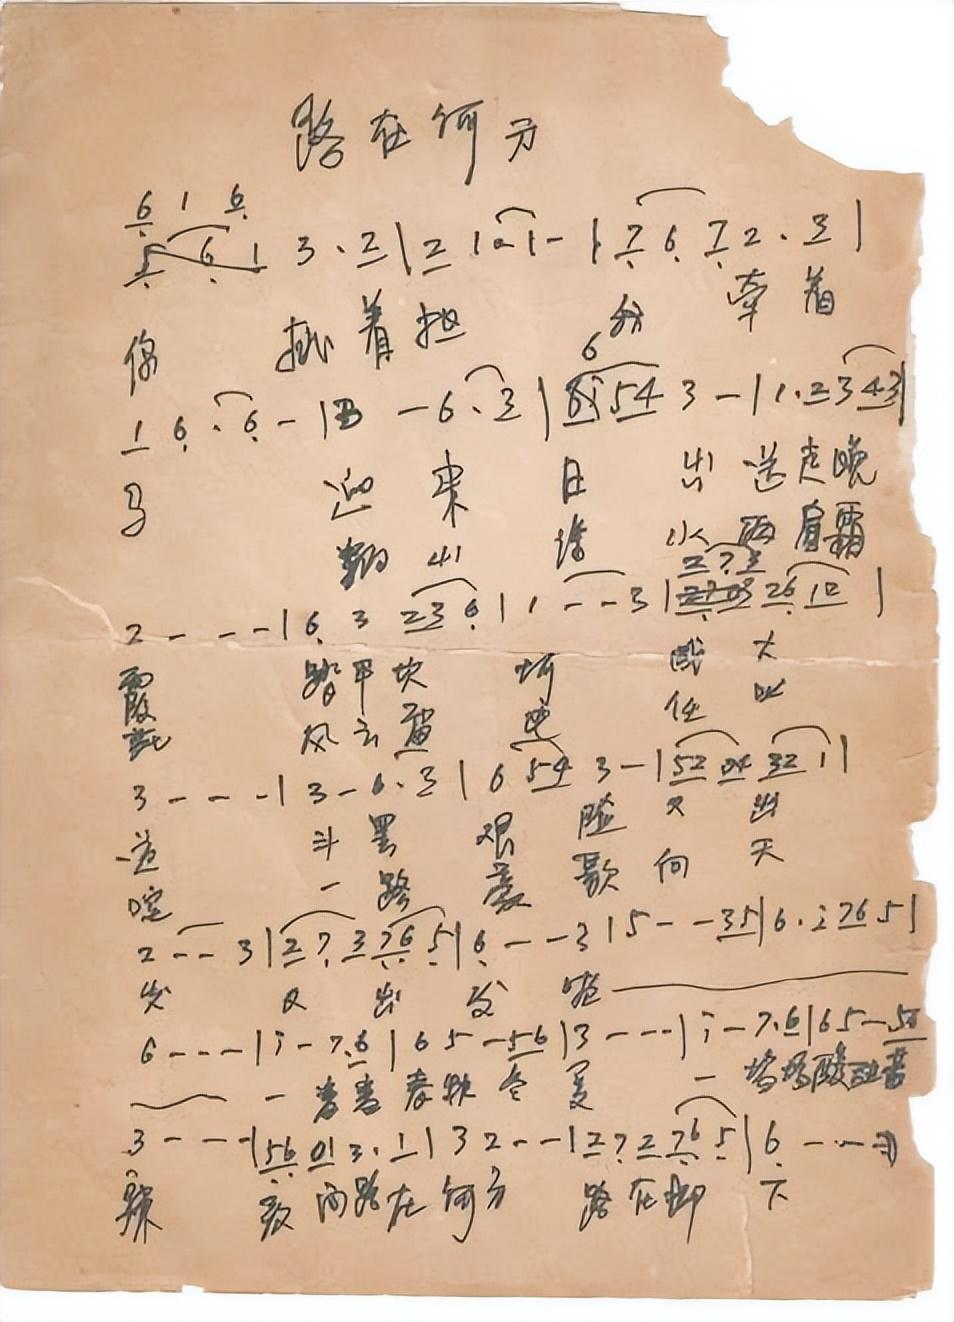 路在何方
6 1 6
5 6 1 3 . 2 | 2 1 . 1 - | 7 6 7 2 . 3 |
你 挑着担 我 牵着
6
1 6 . 6 - | 3 - 6 . 3 | 5 4 3 - | 1 . 2 3 4 3 |
马 迎来日 出 送走晚
翻山涉 水 两肩霜
2 7 3
2 - - - | 6 3 2 3 6 | 1 - - 3 | 2 6 1 2 |
霞 踏平坎 坷 成 大
花 风云雷 电 任 叱
3 - - - | 3 - 6 . 3 | 6 5 4 3 - | 5 2 0 4 3 2 1 |
道 斗罢 艰 险 又 出
咤 一路 豪 歌 向 天
2 - - 3 | 2 7 3 7 6 5 | 6 - - 3 | 5 - - 3 5 | 6 . i 7 6 5 |
发 又 出 发 啦
6 - - - | i - 7 . 6 | 6 5 - 5 6 | 3 - - - | i - 7 . 6 | 6 5 - 5 6
一 番番春秋冬 夏 一 场场酸甜苦
3 - - - | 5 6 0 1 3 . 1 | 3 2 - - | 2 7 2 7 6 5 | 6 - - -
辣 敢问路在何方 路在脚 下